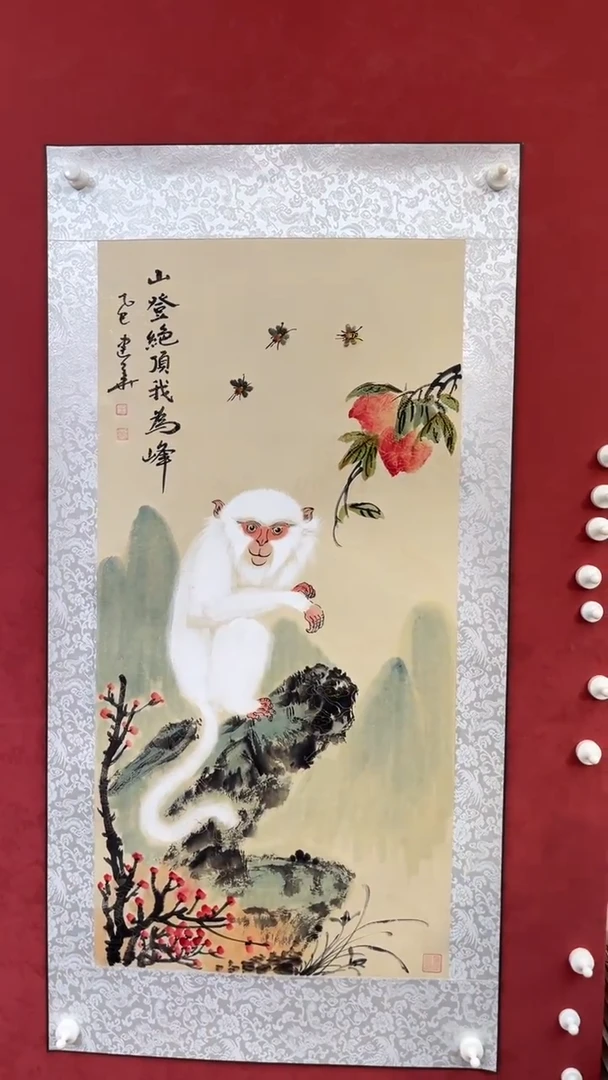 山登絶頂我為峰
乙巳 建華